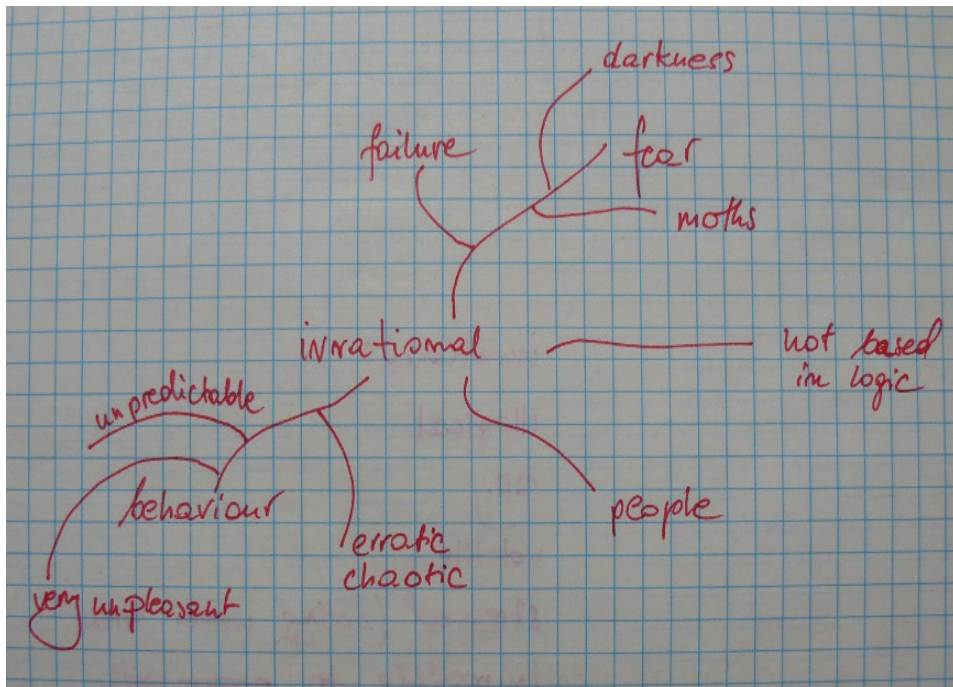 darkness
failure
fear
moths
irrational
not based
in logic
unpredictable
behaviour
people
erratic
chaotic
very unpleasant